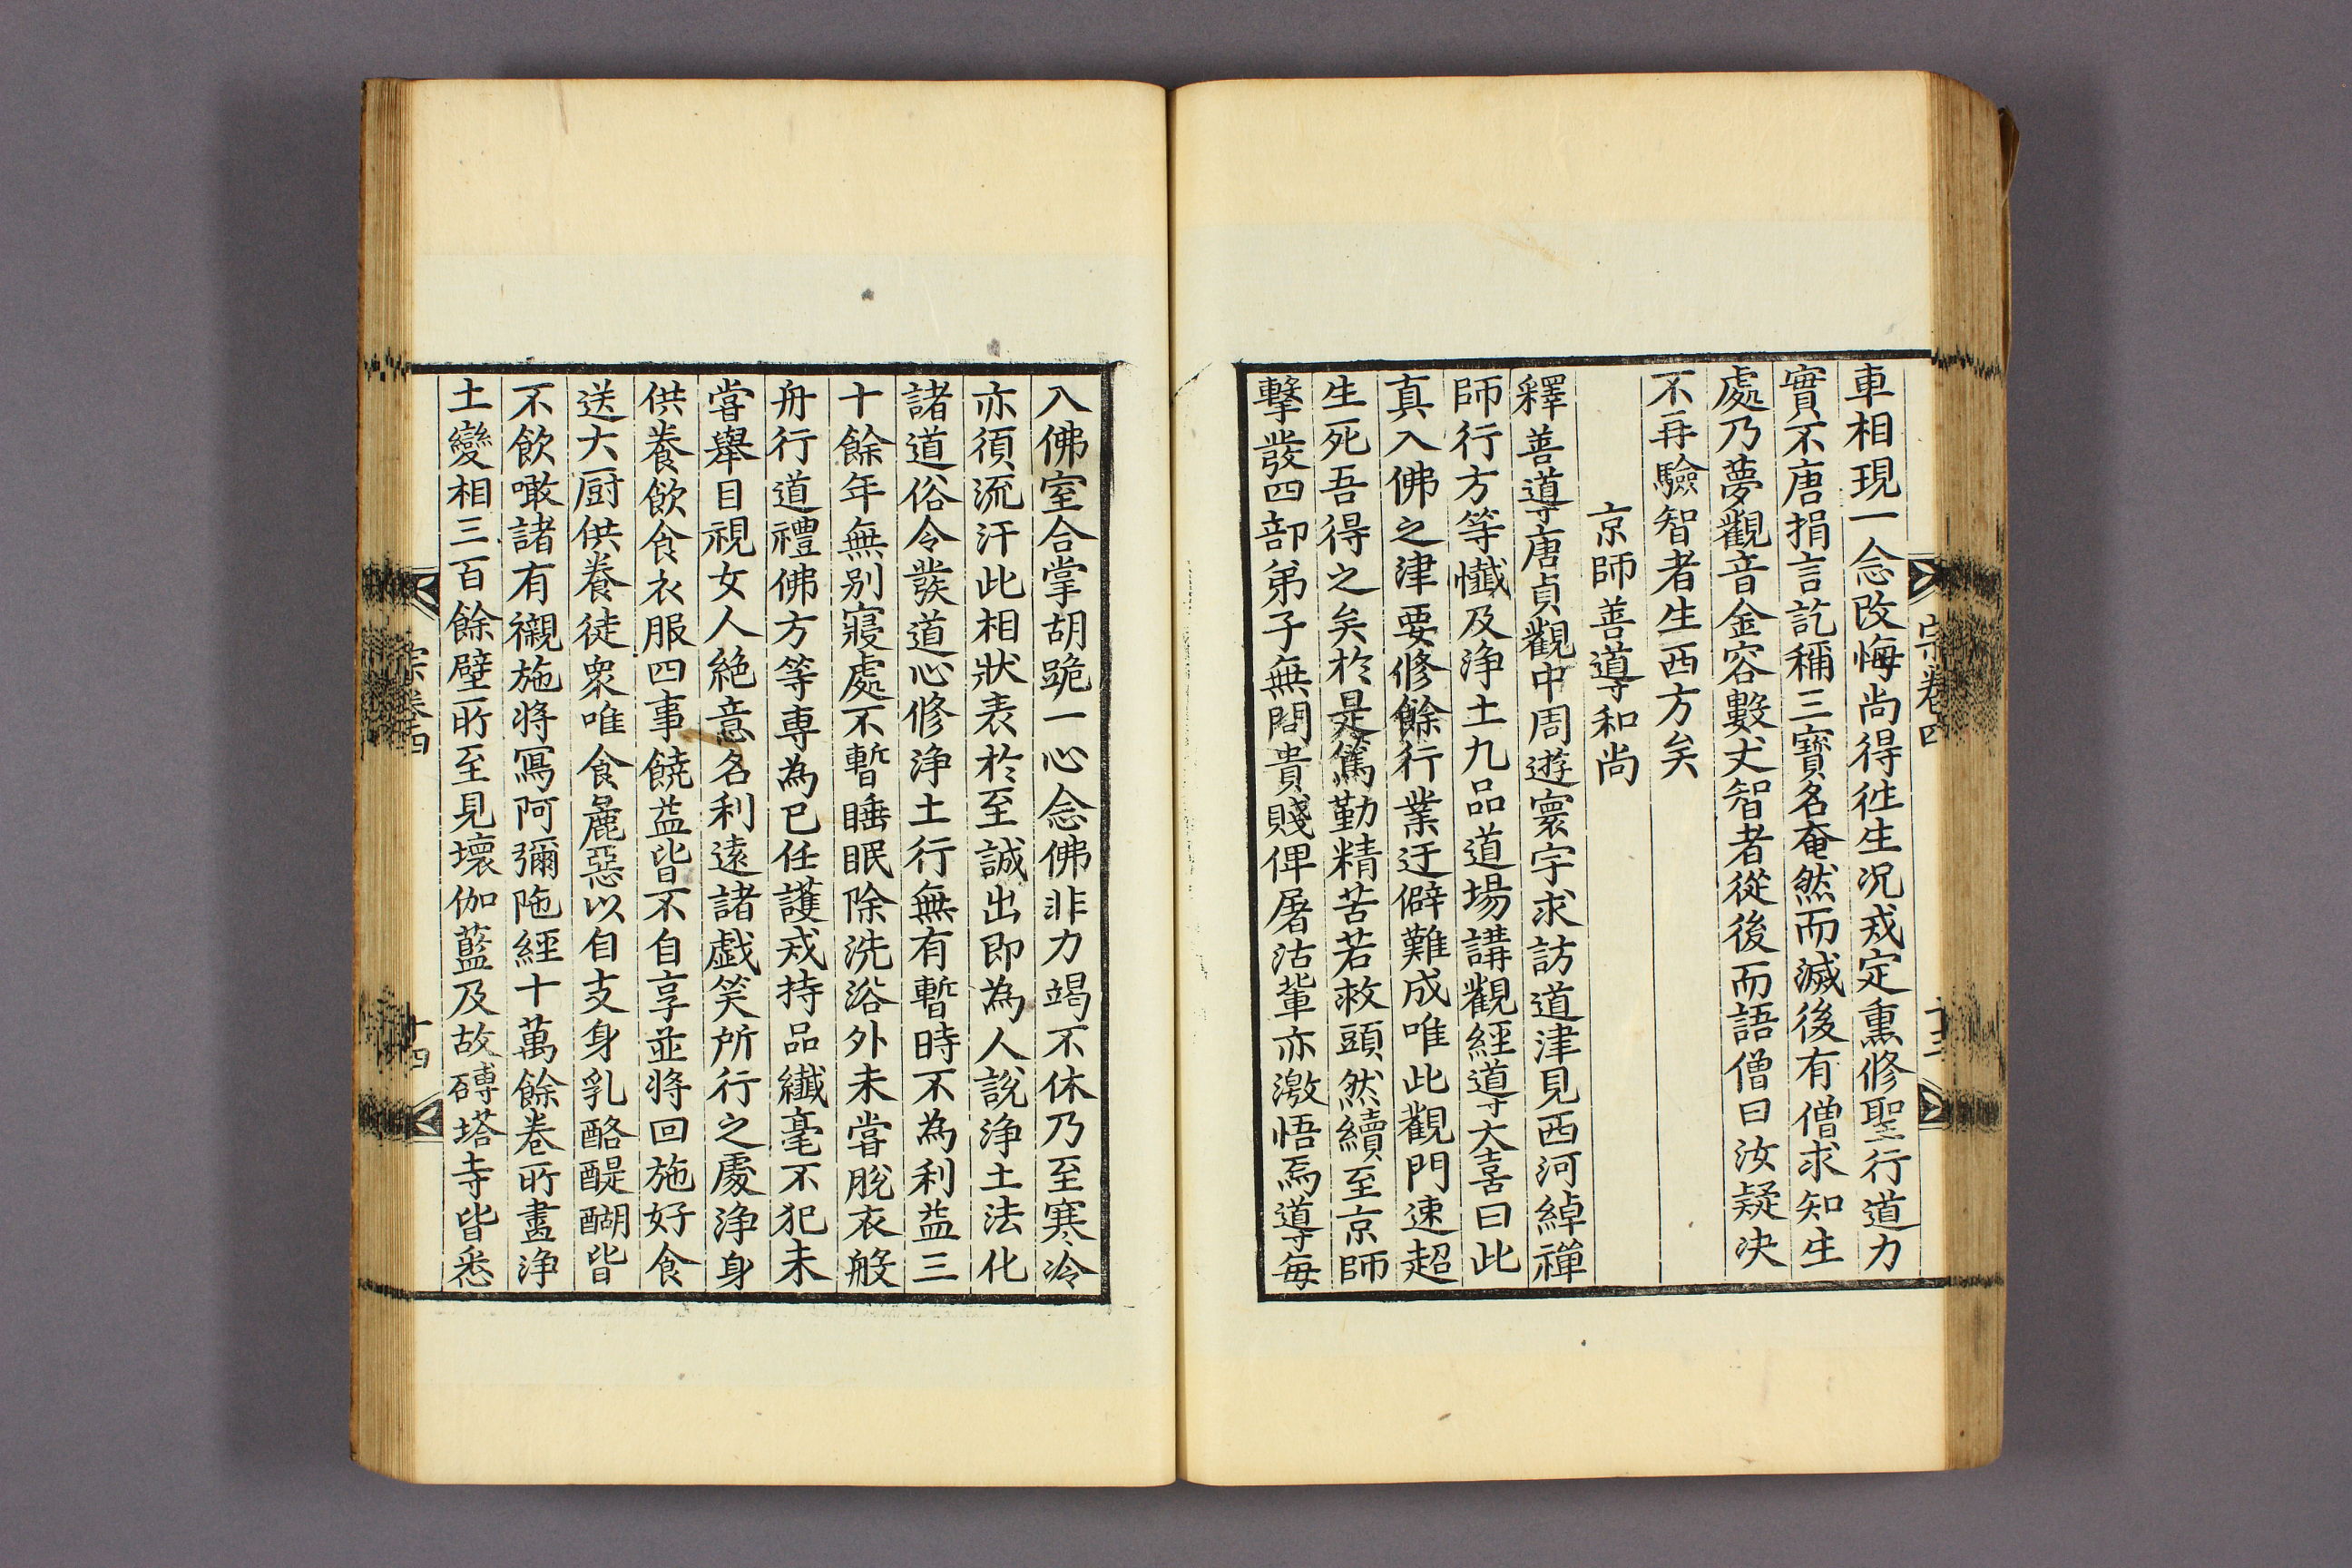 車相現一念改悔尚得徃生況戒定熏修聖行道力
實不唐捐言訖稱三寶名奄然而滅後有僧求知生
處乃夢觀音金容數丈智者從後而語僧曰汝疑决
不再驗智者生西方矣
京師善導和尚
釋善導唐貞觀中周遊寰宇求訪道津見西河綽禪
師行方等懺及淨土九品道場講觀經導大喜曰此
真入佛之津要修餘行業迂僻難成唯此觀門速超
生死吾得之矣於是篤勤精苦若救頭然續至京師
擊發四部弟子無問貴賤俾屠沽輩亦激悟焉導每
宗卷四
十三
入佛室合掌胡跪一心念佛非力竭不休乃至寒冷
亦須流汗此相狀表於至誠出即為人說淨土法化
諸道俗令發道心修淨土行無有暫時不為利益三
十餘年無别寢處不暫睡眠除洗浴外未嘗脫衣般
舟行道禮佛方等專為已任護戒持品纖毫不犯未
嘗舉目視女人絶意名利遠諸戯笑所行之處淨身
供養飲食衣服四事饒益皆不自享並將回施好食
送大厨供養徒衆唯食麁惡以自支身乳酪醍醐皆
不飲噉諸有襯施將寫阿彌陁經十萬餘卷所畫淨
土變相三百餘壁所至見壞伽藍及故磚塔寺皆悉
宗卷四
十四